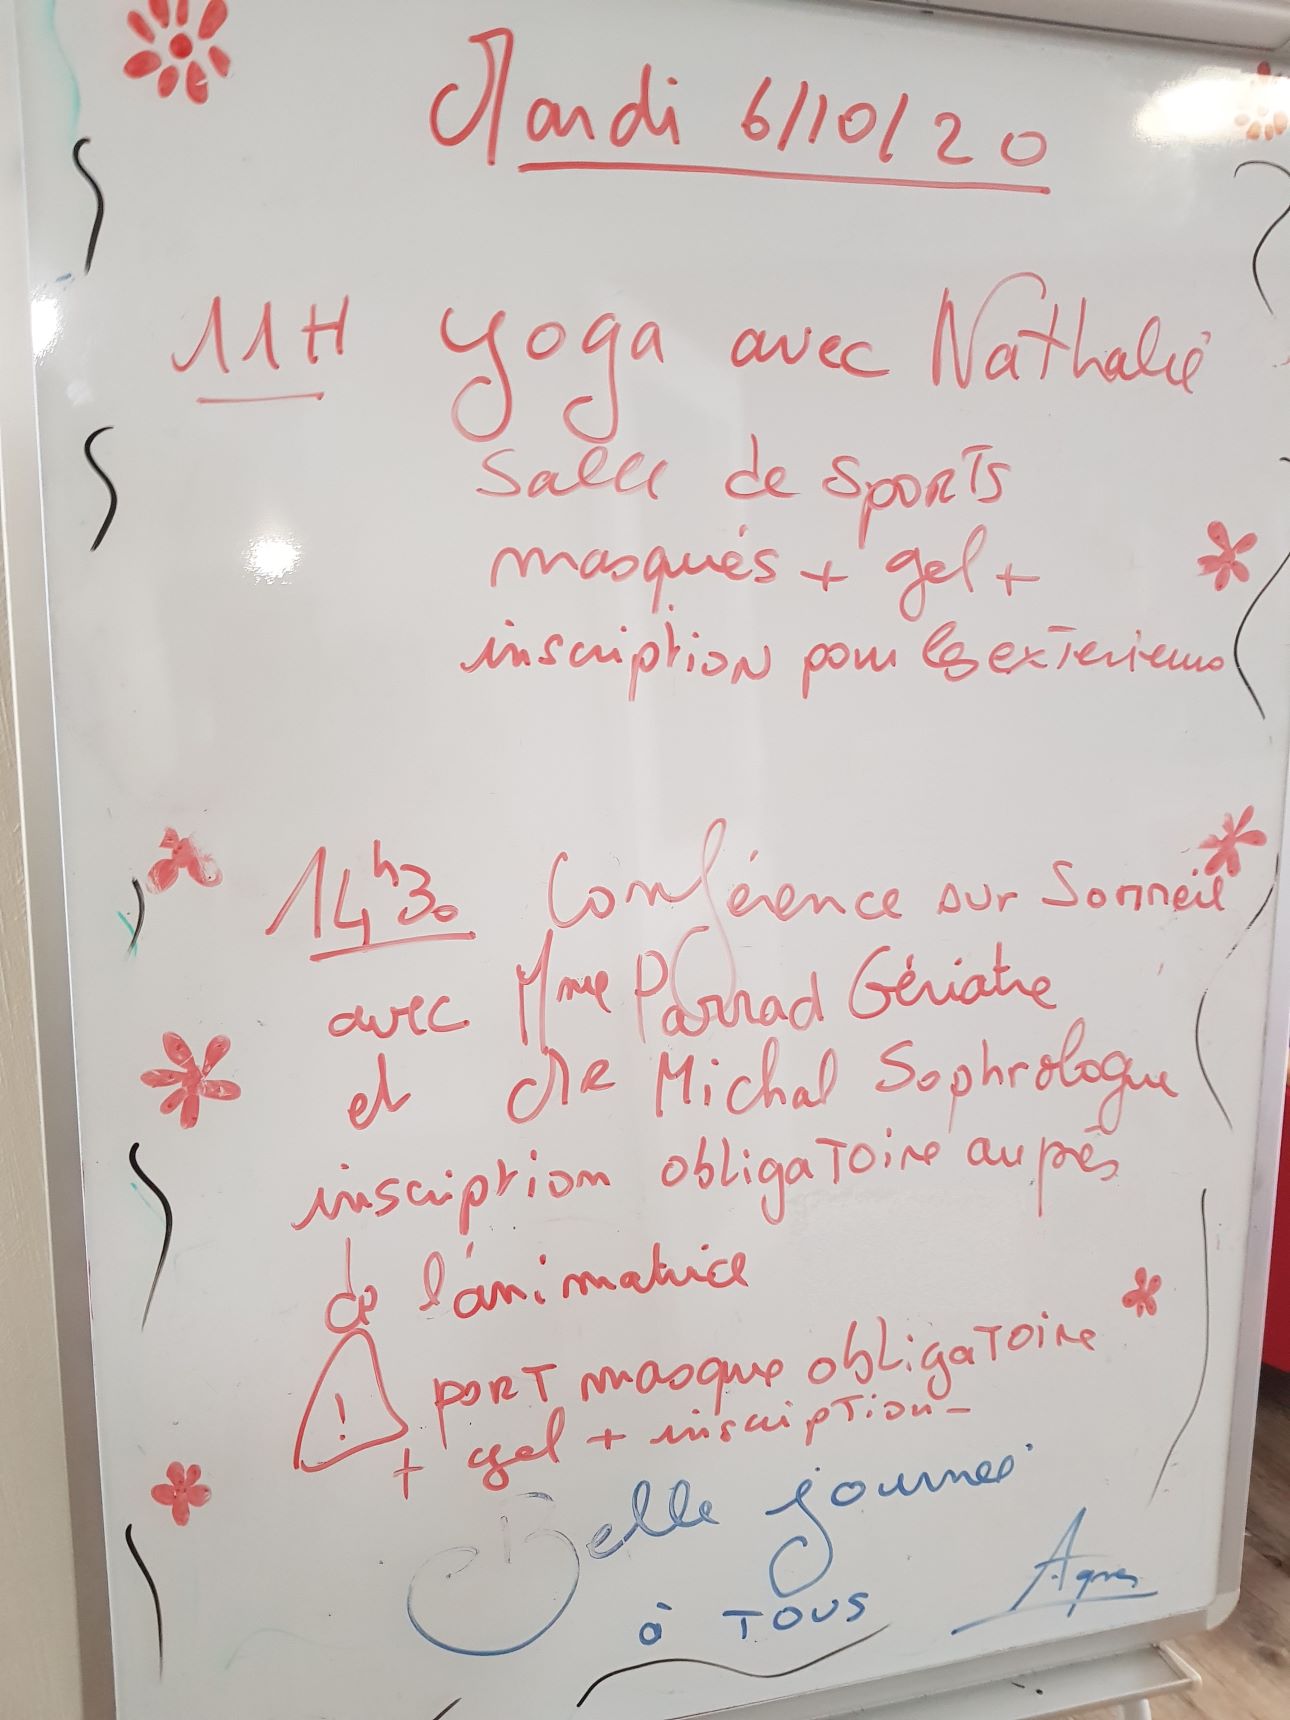 Mardi 6/10/20
11H yoga avec Nathalie
Salle de sports
masqués + gel +
inscription pour les exterieurs
14h30 Conférence sur Sommeil
avec Mme Parrad Gériatre
et Mr Michal Sophrologue
inscription obligatoire auprés
de l'animatrice
! port masque obligatoire
+ gel + inscription -
Belle journée
à TOUS
Agnes